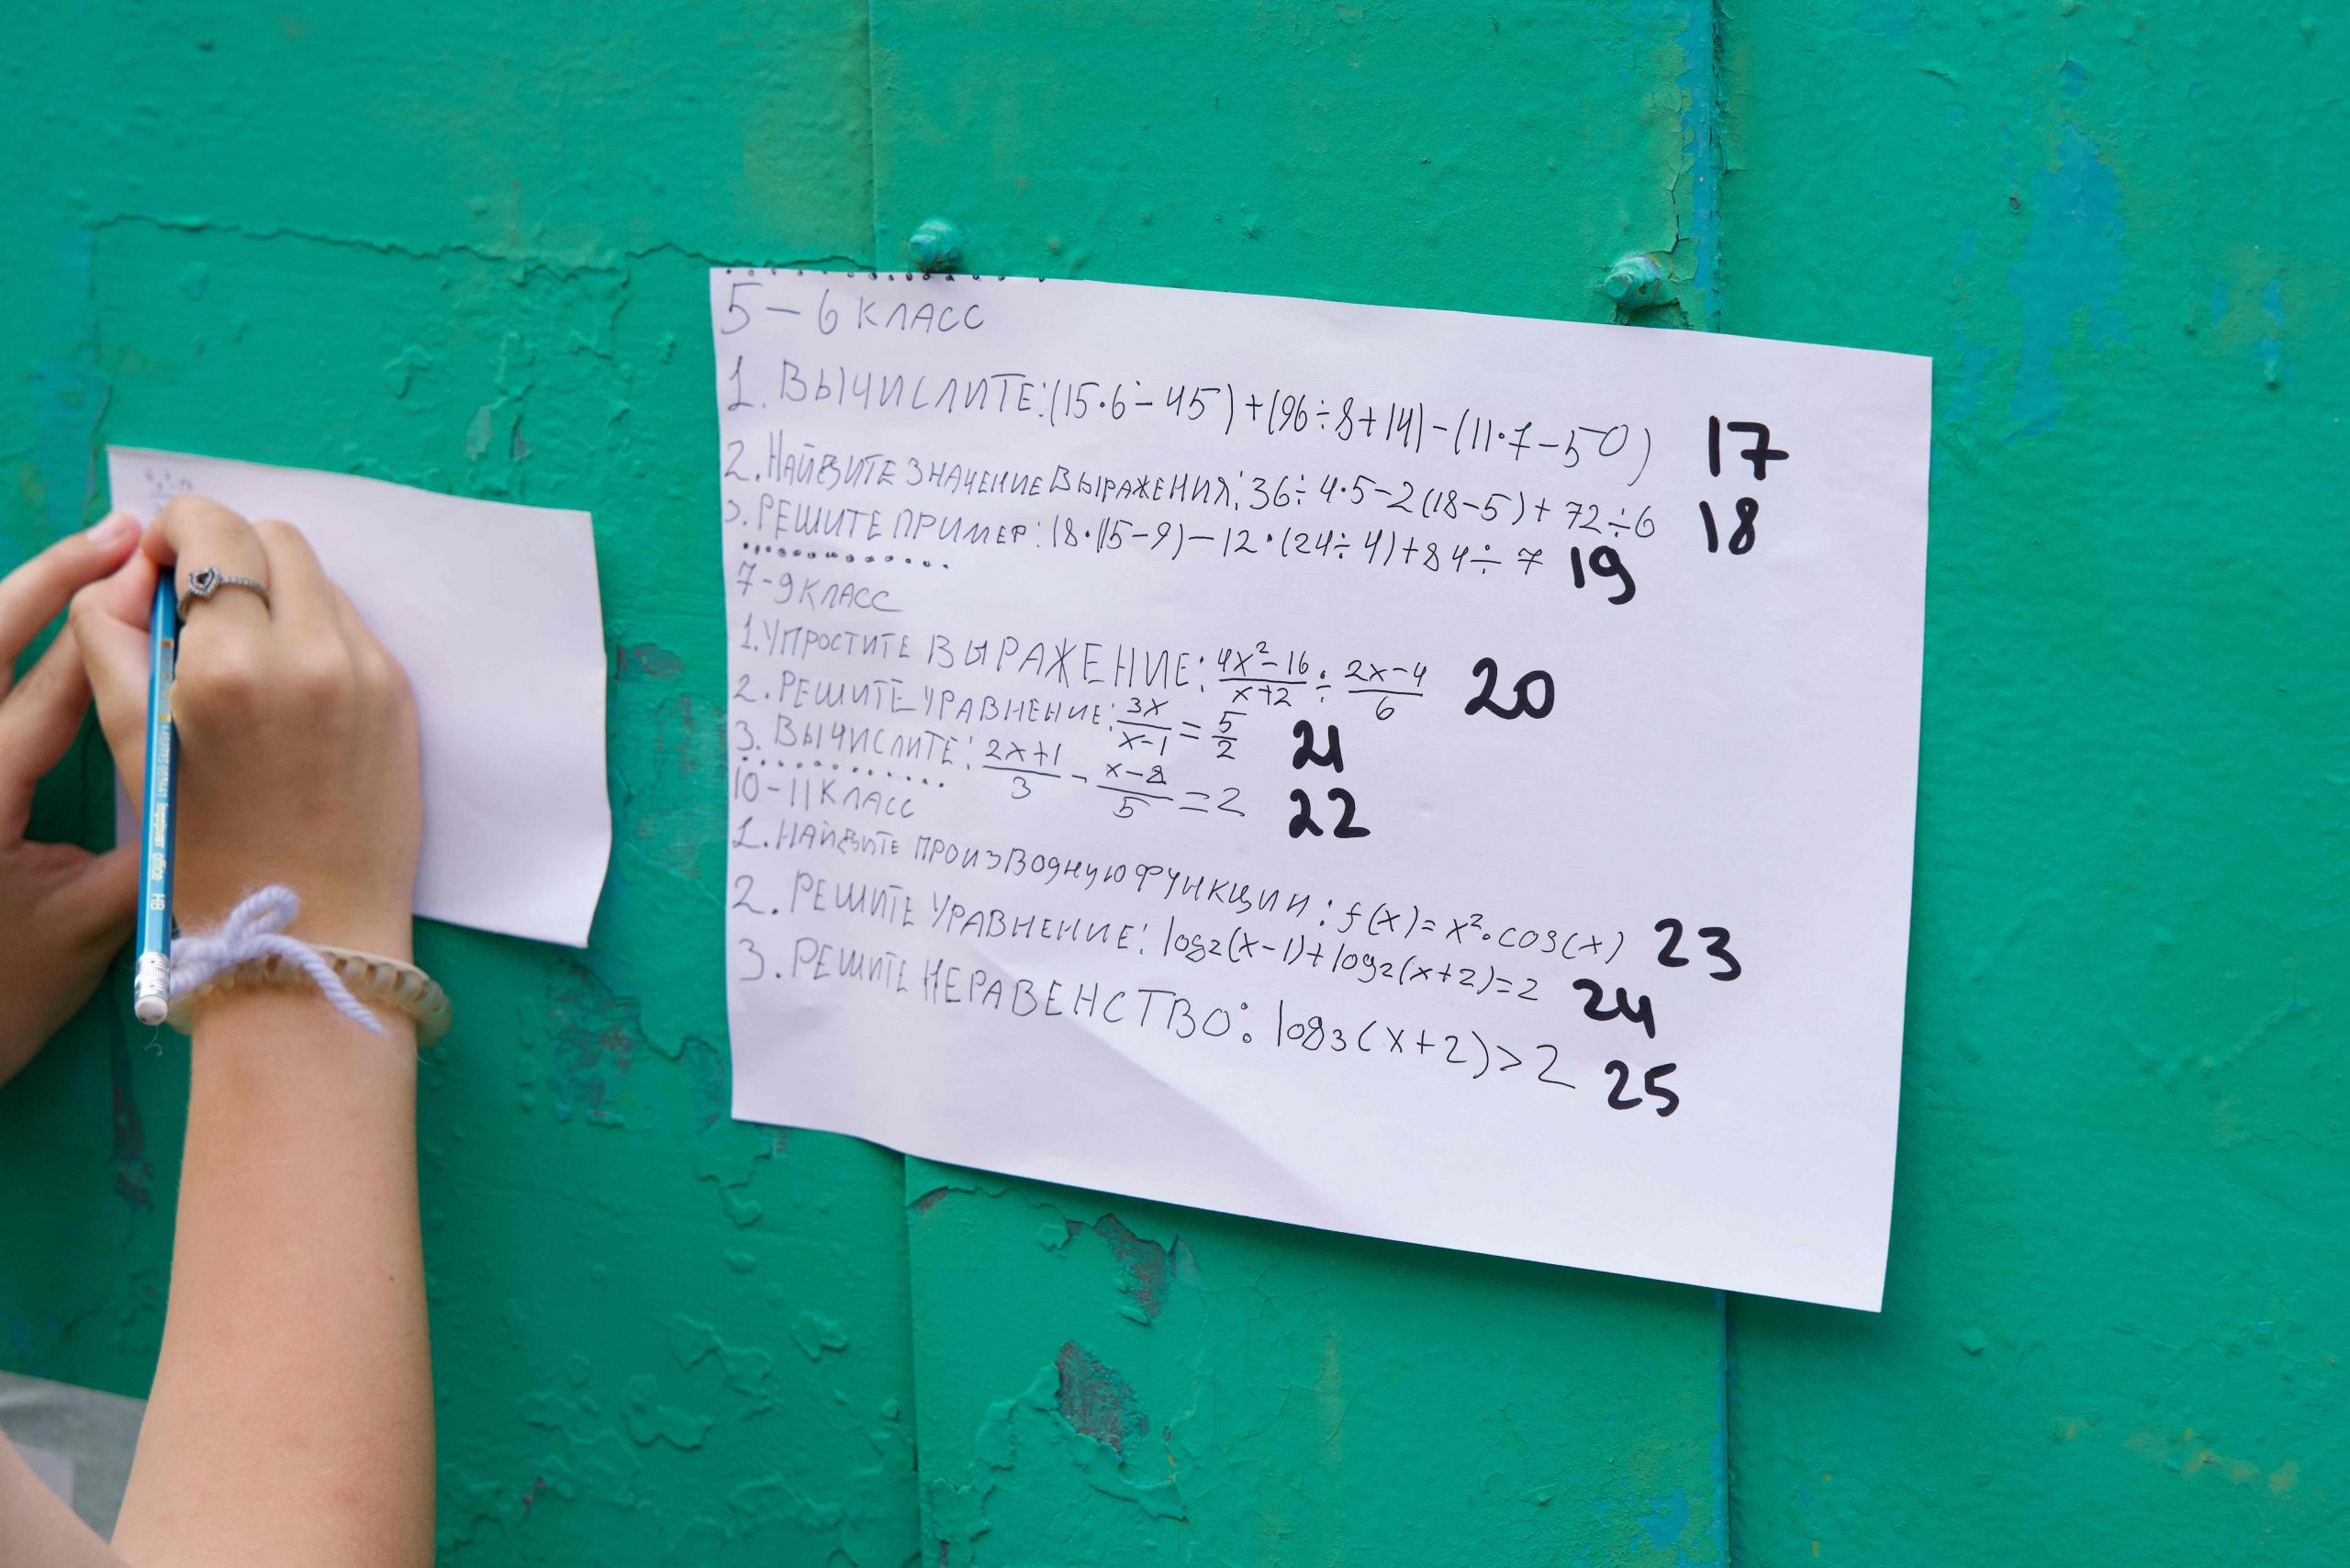 5 – 6 КЛАСС
1. ВЫЧИСЛИТЕ: (15·6 ÷ 45) + (96 ÷ 8 + 14) – (11·7 – 50) 17
2. НАЙДИТЕ ЗНАЧЕНИЕ ВЫРАЖЕНИЯ: 36 ÷ 4·5 – 2(18–5) + 72 ÷ 6 18
3. РЕШИТЕ ПРИМЕР: 18·(15–9) – 12·(24÷4) + 84 ÷ 7 19
7-9 КЛАСС
1. УПРОСТИТЕ ВЫРАЖЕНИЕ: (4x²–16)/(x+2) ÷ (2x–4)/6 20
2. РЕШИТЕ УРАВНЕНИЕ: 3x/(x–1) = 5/2 21
3. ВЫЧИСЛИТЕ: (2x+1)/3 – (x–2)/5 = 2 22
10-11 КЛАСС
1. НАЙДИТЕ ПРОИЗВОДНУЮ ФУНКЦИИ: f(x) = x²·cos(x) 23
2. РЕШИТЕ УРАВНЕНИЕ: log₂(x–1) + log₂(x+2) = 2 24
3. РЕШИТЕ НЕРАВЕНСТВО: log₃(x+2) > 2 25